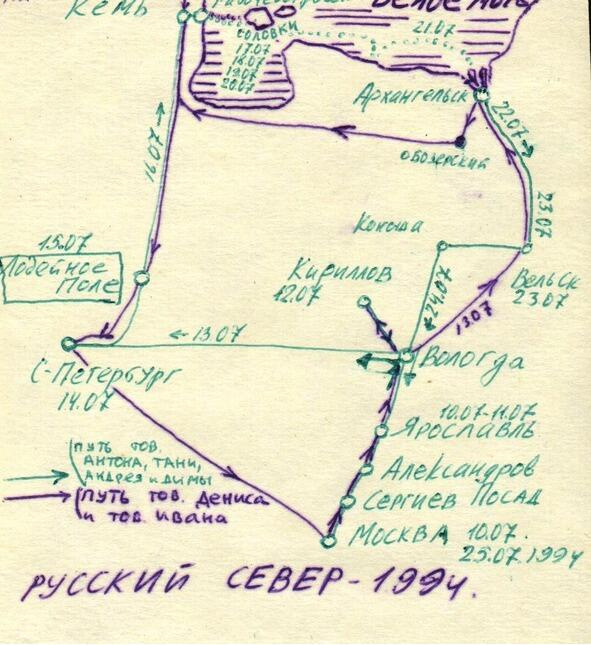 Кемь
Белое море
21.07
Соловки
17.07
18.07
19.07
20.07
Архангельск
22.07→
16.07→
Обозерский
23.07
15.07
Лодейное
Поле
Коноша
Кириллов
12.07
←24.07
13.07
Вельск
23.07
←13.07
Вологда
С-Петербург
14.07
10.07-11.07
Ярославль
Александров
Сергиев Посад
Москва 10.07.
25.07.1994
путь тов.
Антона, Тани,
Андрея и Димы
путь тов. Дениса
и тов. Ивана
Русский Север-1994.